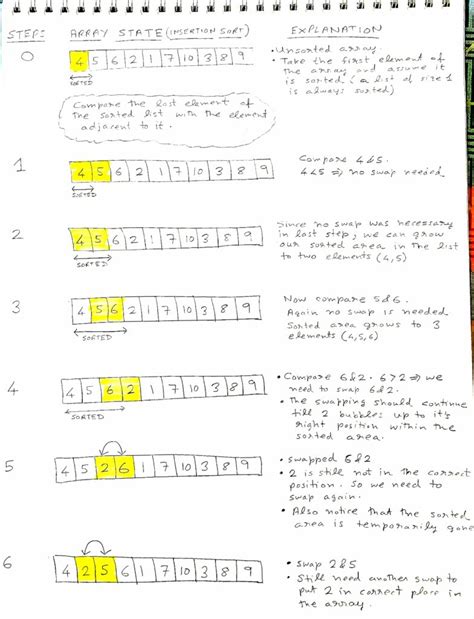 STEP: ARRAY STATE (INSERTION SORT) EXPLANATION
0
4 5 6 2 1 7 10 3 8 9
SORTED
• Unsorted array.
• Take the first element of
the array and assume it
is sorted (a list of size 1
is always sorted)
Compare the last element of
the sorted list with the element
adjacent to it.
1
4 5 6 2 1 7 10 3 8 9
SORTED
Compare 4 & 5.
4<5 ⇒ no swap needed
2
4 5 6 2 1 7 10 3 8 9
SORTED
Since no swap was necessary
in last step, we can grow
our sorted area in the list
to two elements (4,5)
3
4 5 6 2 1 7 10 3 8 9
SORTED
Now compare 5 & 6.
Again no swap is needed
Sorted area grows to 3
elements (4,5,6)
4
4 5 6 2 1 7 10 3 8 9
SORTED
• Compare 6 & 2. 6>2 ⇒ we
need to swap 6 & 2.
• The swapping should continue
till 2 bubbles up to it's
right position within the
sorted area.
5
4 5 2 6 1 7 10 3 8 9
• swapped 6 & 2
• 2 is still not in the correct
position. So we need to
swap again.
• Also notice that the sorted
area is temporarily gone
6
4 2 5 6 1 7 10 3 8 9
• swap 2 & 5
• Still need another swap to
put 2 in correct place in
the array.